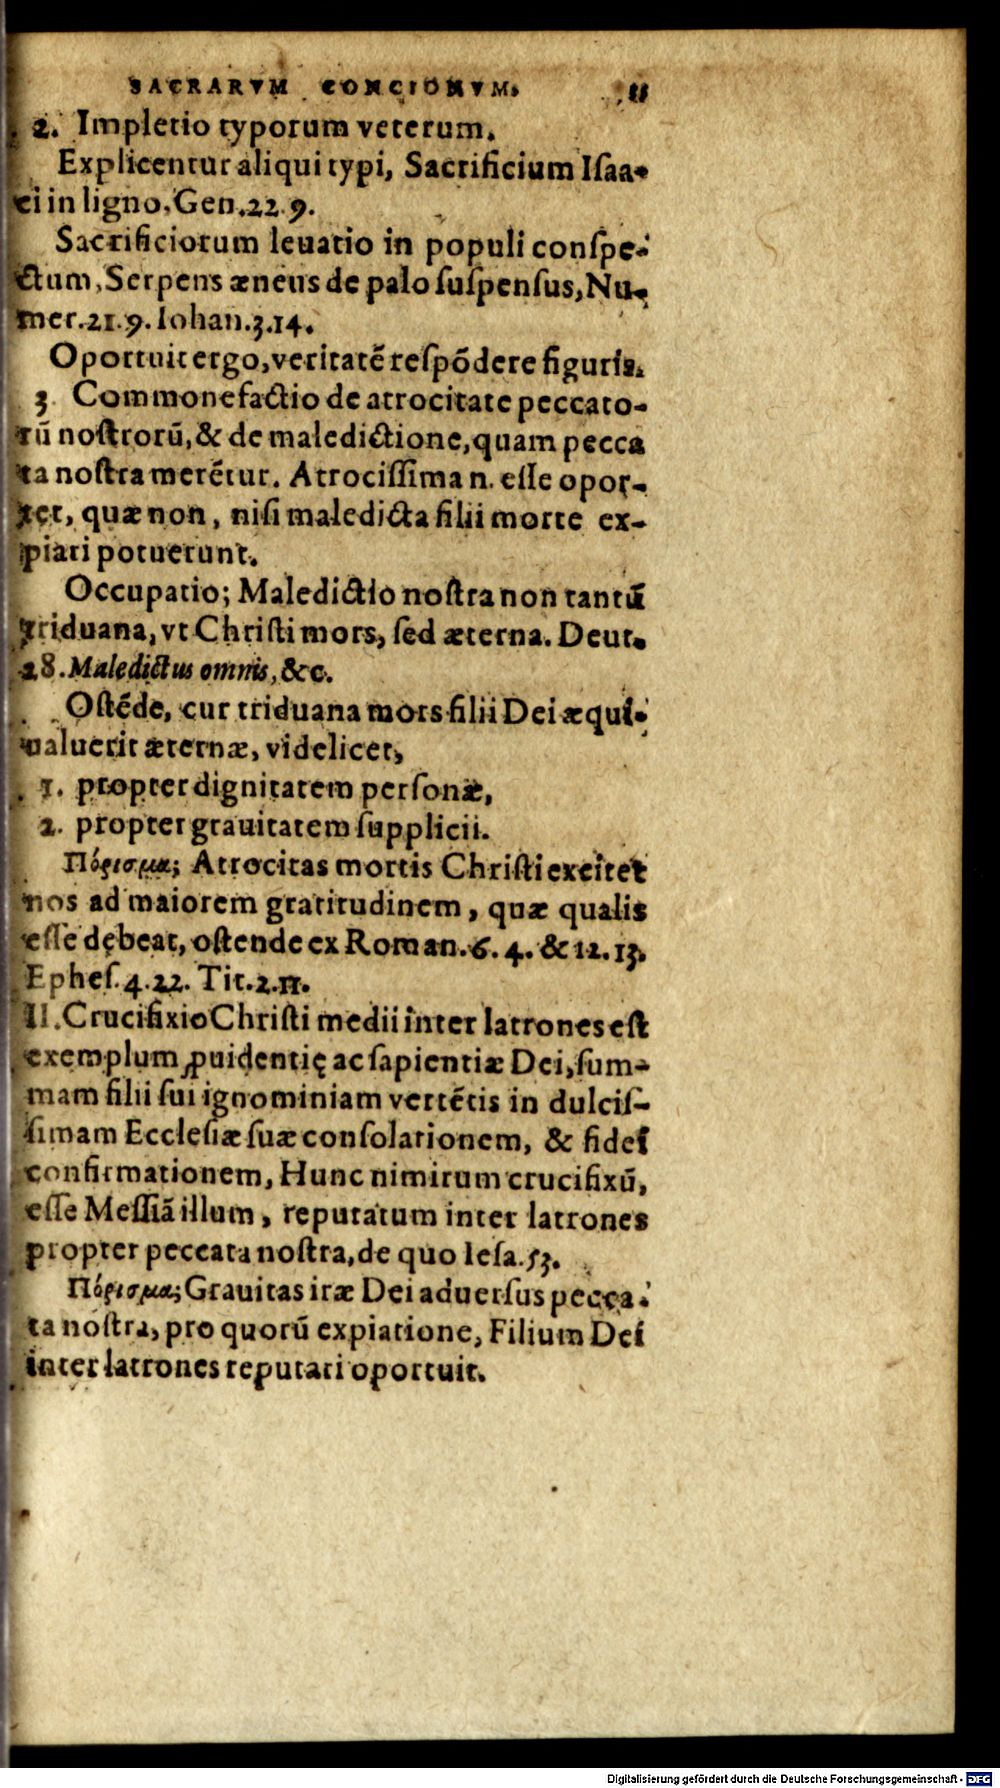 SACRARVM CONCIONVM. 11
2. Impletio typorum veterum.
Explicentur aliqui typi, Sacrificium Iſaa-
ci in ligno. Gen. 22. 9.
Sacrificiorum leuatio in populi conſpe-
ctum, Serpens æneus de palo ſuſpenſus, Nu-
mer. 21. 9. Iohan. 3. 14.
Oportuit ergo, veritatē reſpōdere figuris.
3 Commonefactio de atrocitate peccato-
rū noſtrorū, & de maledictione, quam pecca
ta noſtra merētur. Atrociſſima n. eſſe opor-
tet, quæ non, niſi maledicta filii morte ex-
piari potuerunt.
Occupatio; Maledictio noſtra non tantū
triduana, vt Chriſti mors, ſed æterna. Deut.
28. Maledictus omnis, &c.
Oſtēde, cur triduana mors filii Dei æqui-
ualuerit æternæ, videlicet,
1. propter dignitatem perſonæ,
2. propter grauitatem ſupplicii.
Πόρισμα; Atrocitas mortis Chriſti excitet
nos ad maiorem gratitudinem, quæ qualis
eſſe debeat, oſtende ex Roman. 6. 4. & 12. 13.
Epheſ. 4. 22. Tit. 2. 11.
II. Crucifixio Chriſti medii inter latrones eſt
exemplum ꝓuidentię ac ſapientiæ Dei, ſum-
mam filii ſui ignominiam vertētis in dulciſ-
ſimam Eccleſiæ ſuæ conſolationem, & fidei
confirmationem, Hunc nimirum crucifixū,
eſſe Meſſiā illum, reputatum inter latrones
propter peccata noſtra, de quo Ieſa. 53.
Πόρισμα; Grauitas iræ Dei aduerſus pecca-
ta noſtra, pro quorū expiatione, Filium Dei
inter latrones reputari oportuit.
Digitalisierung gefördert durch die Deutsche Forschungsgemeinschaft - DFG